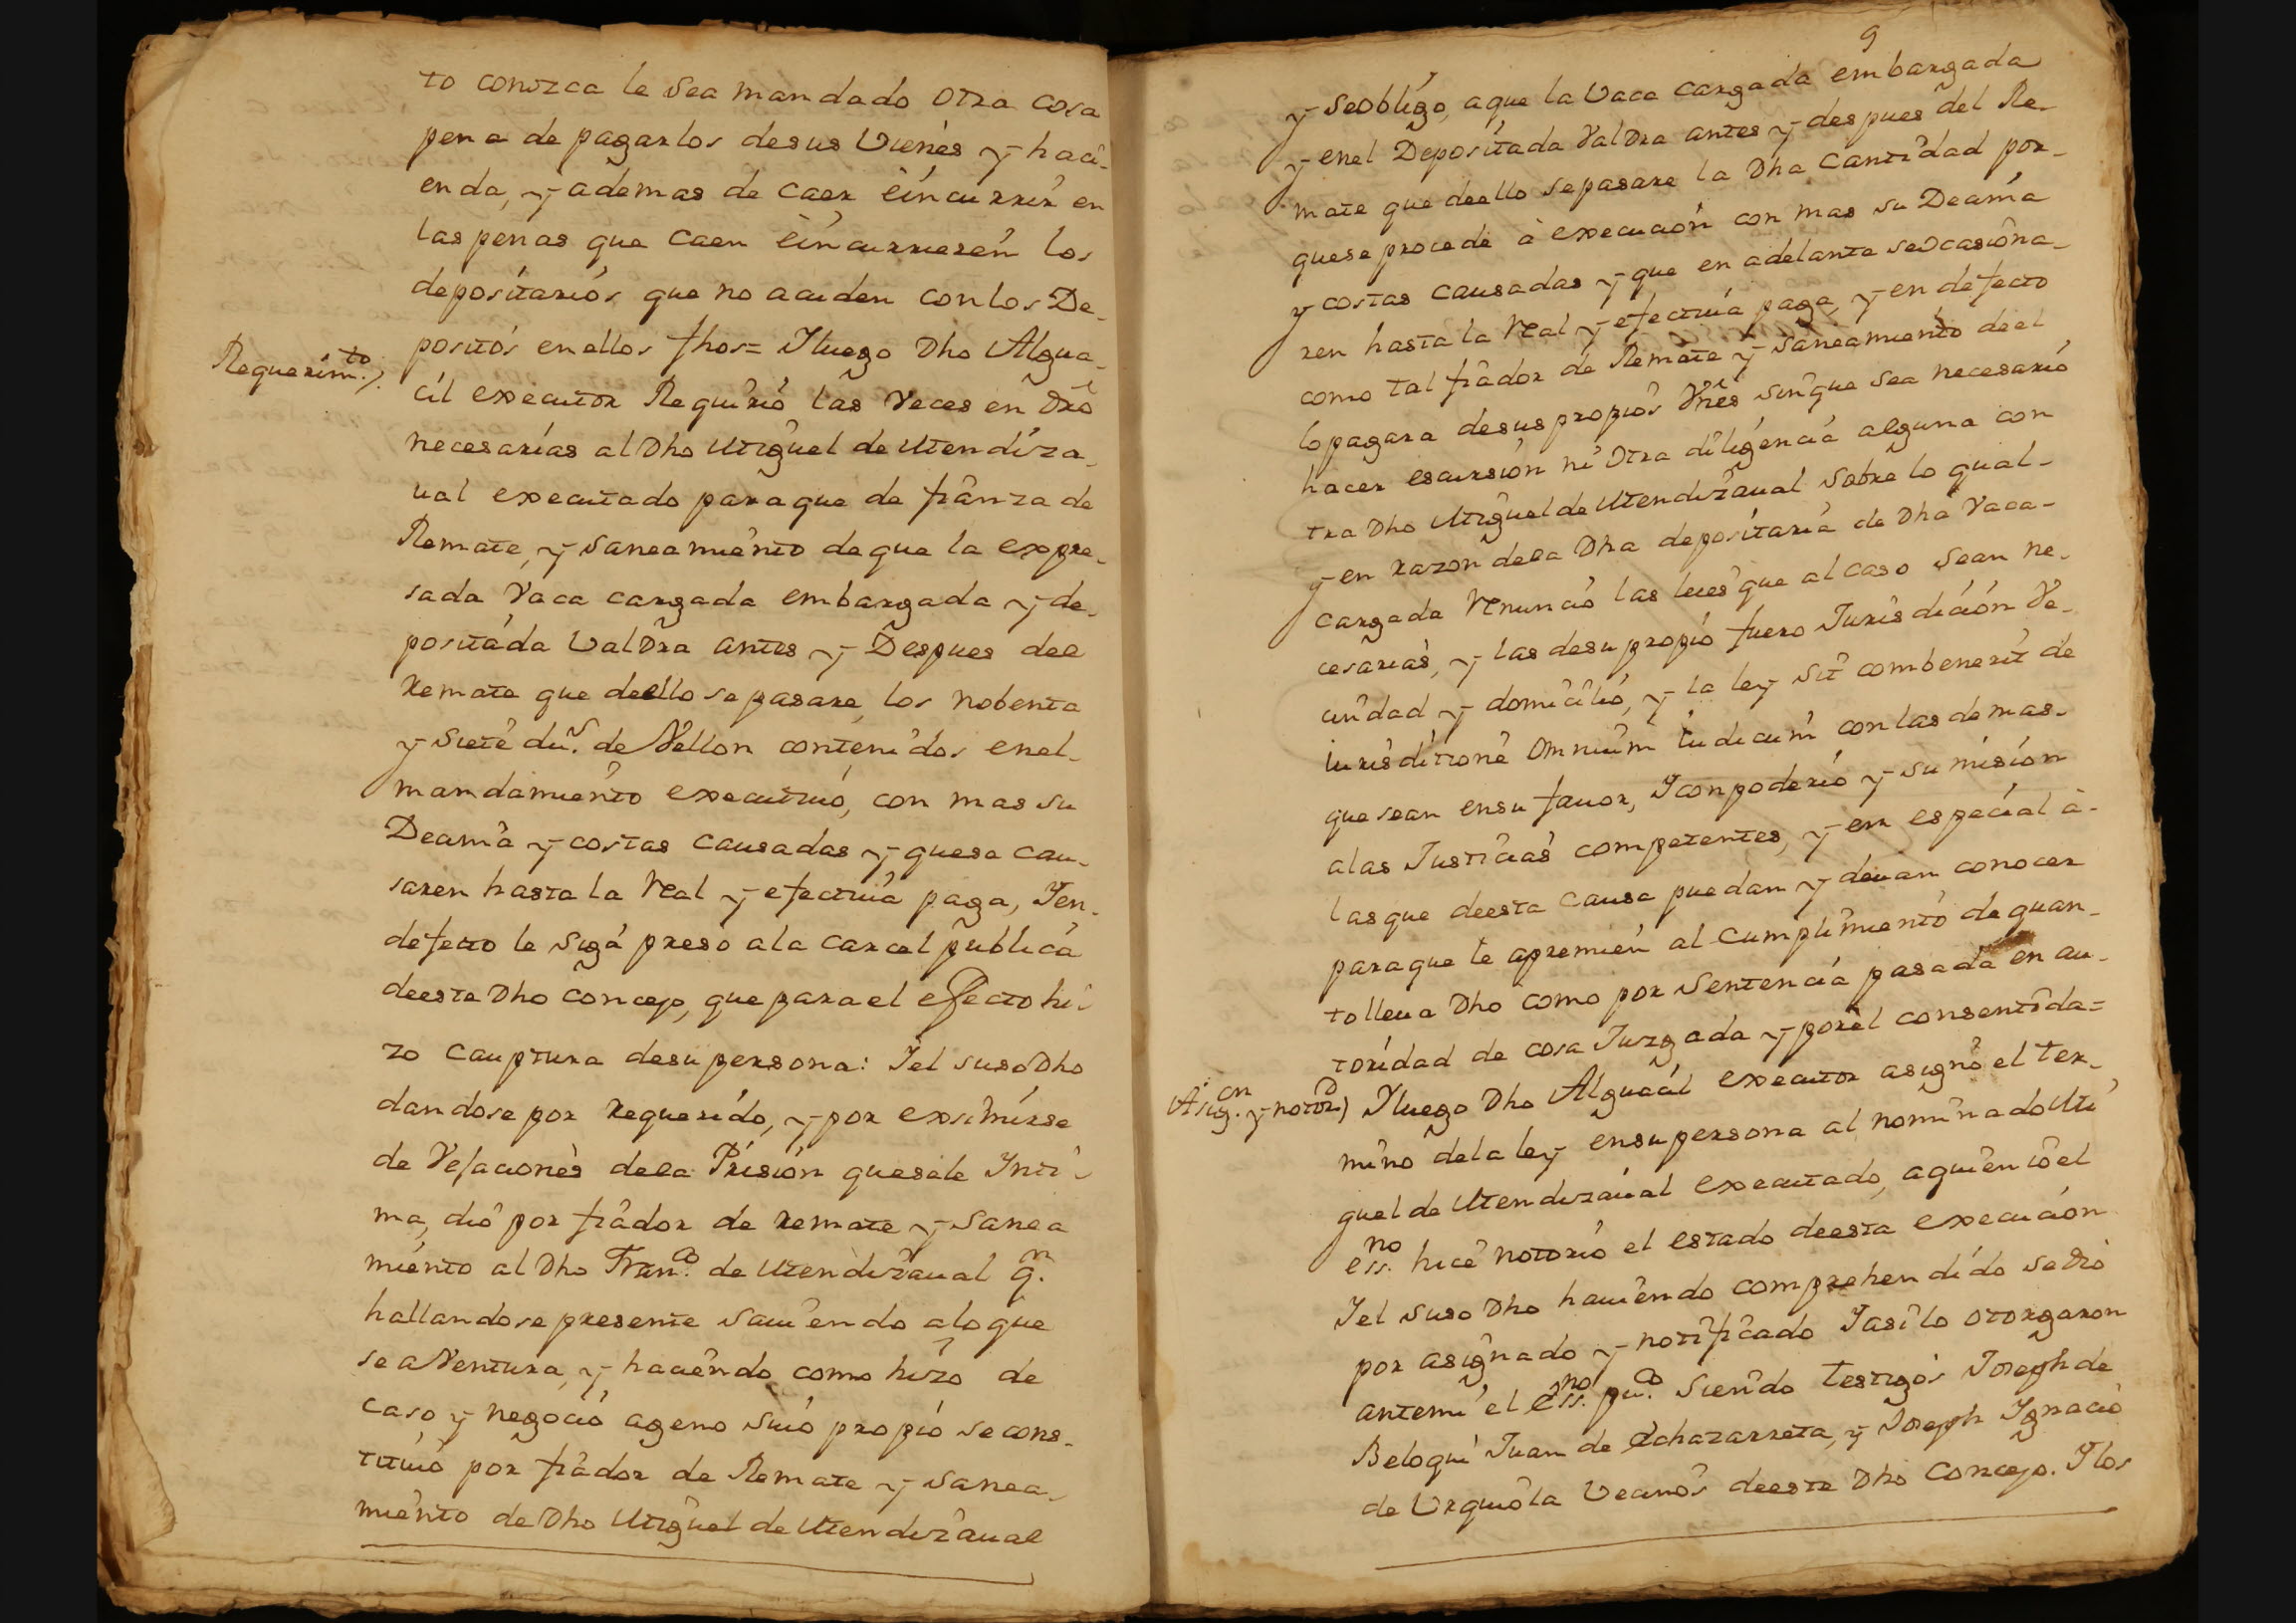 to conozca le sea mandado otra cosa
pena de pagarlos desus vienes y haci-
enda, y ademas de caer èincurrir en
las penas que caen èincurrieren los
depositarios que no acuden con los De-
positos enellos fhos= Yluego Dho Algua-
Requerim.to
cil executor Requirio las veces en dro
necesarias al Dho Miguel de Mendiza-
ual executado paraque de fianza de
Remate, y saneamiento deque la expre-
sada Vaca cargada embargada y de-
positada valdra antes y Despues del
Remate que deello se pasare los nobenta
y siete du.s de Vellon contenidos enel-
mandamiento executiuo, con mas su
Decima y costas causadas y quese cau-
saren hasta la Real y efectiua paga, Yen-
defecto le siga preso ala carcel publica
deeste Dho concejo, que para el efecto hi-
zo cauptura desu persona: Yel susodho
dandose por requerido, y por exsimirse
de Vejaciones dela Prision quesele Ynti-
ma, dio por fiador de remate y sanea
miento al Dho Fran.co de Mendizaual q.n
hallandose presente sauiendo alo que
se aVentura, y haciendo como hizo de
caso y negocio ageno suio propio se cons-
tituio por fiador de Remate y sanea-
miento de Dho Miguel de Mendizaual
9
y seobligo, aque la Vaca cargada embargada
y enel Depositada Valdra antes y despues del Re-
mate que deello sepasare la Dha cantidad por-
quese procede à execucion con mas su Decima
y costas causadas y que en adelante seocasiona-
ren hasta la Real y efectiua paga, y en defecto
como tal fiador de Remate y saneamiento deel
lo pagara desus propios Vnes sinque sea necesario
hacer escursion ni otra diligencia alguna con
tra Dho Miguel de Mendizaual sobre lo qual-
y en razon dela Dha depositaria de Dha Vaca-
cargada Renuncio las leies que al caso sean ne-
cesarias, y las desu propio fuero Jurisdicion Ve-
cindad y domicilio, y la ley sit combenerit de
iurisditione omnium iudicum con las demas-
que sean ensu fauor, Yconpoderio y sumision
alas Justicias competentes, y en especial à-
las que deesta causa puedan y deuan conocer
paraque le apremien al cumplimiento de quan-
to lleua Dho como por sentencia pasada en au-
toridad de cosa Juzgada y porèl consentida=
Asig.on y notor.d) Yluego Dho Alguacil executor asignò el ter-
mino dela ley ensu persona al nominado Mi
guel de Mendizaual executado, aquien io el
ess.no hice notorio el estado deesta execucion
Yel suso Dho hauiendo comprehendido sediò
por asignado y notificado Yasi lo otorgaron
antemi el ess.no pu.co siendo testigos Joseph de
Beloqui Juan de Echazarreta, y Joseph Ygnacio
de Urquiola Vecinos deeste Dho Concejo. Ylos